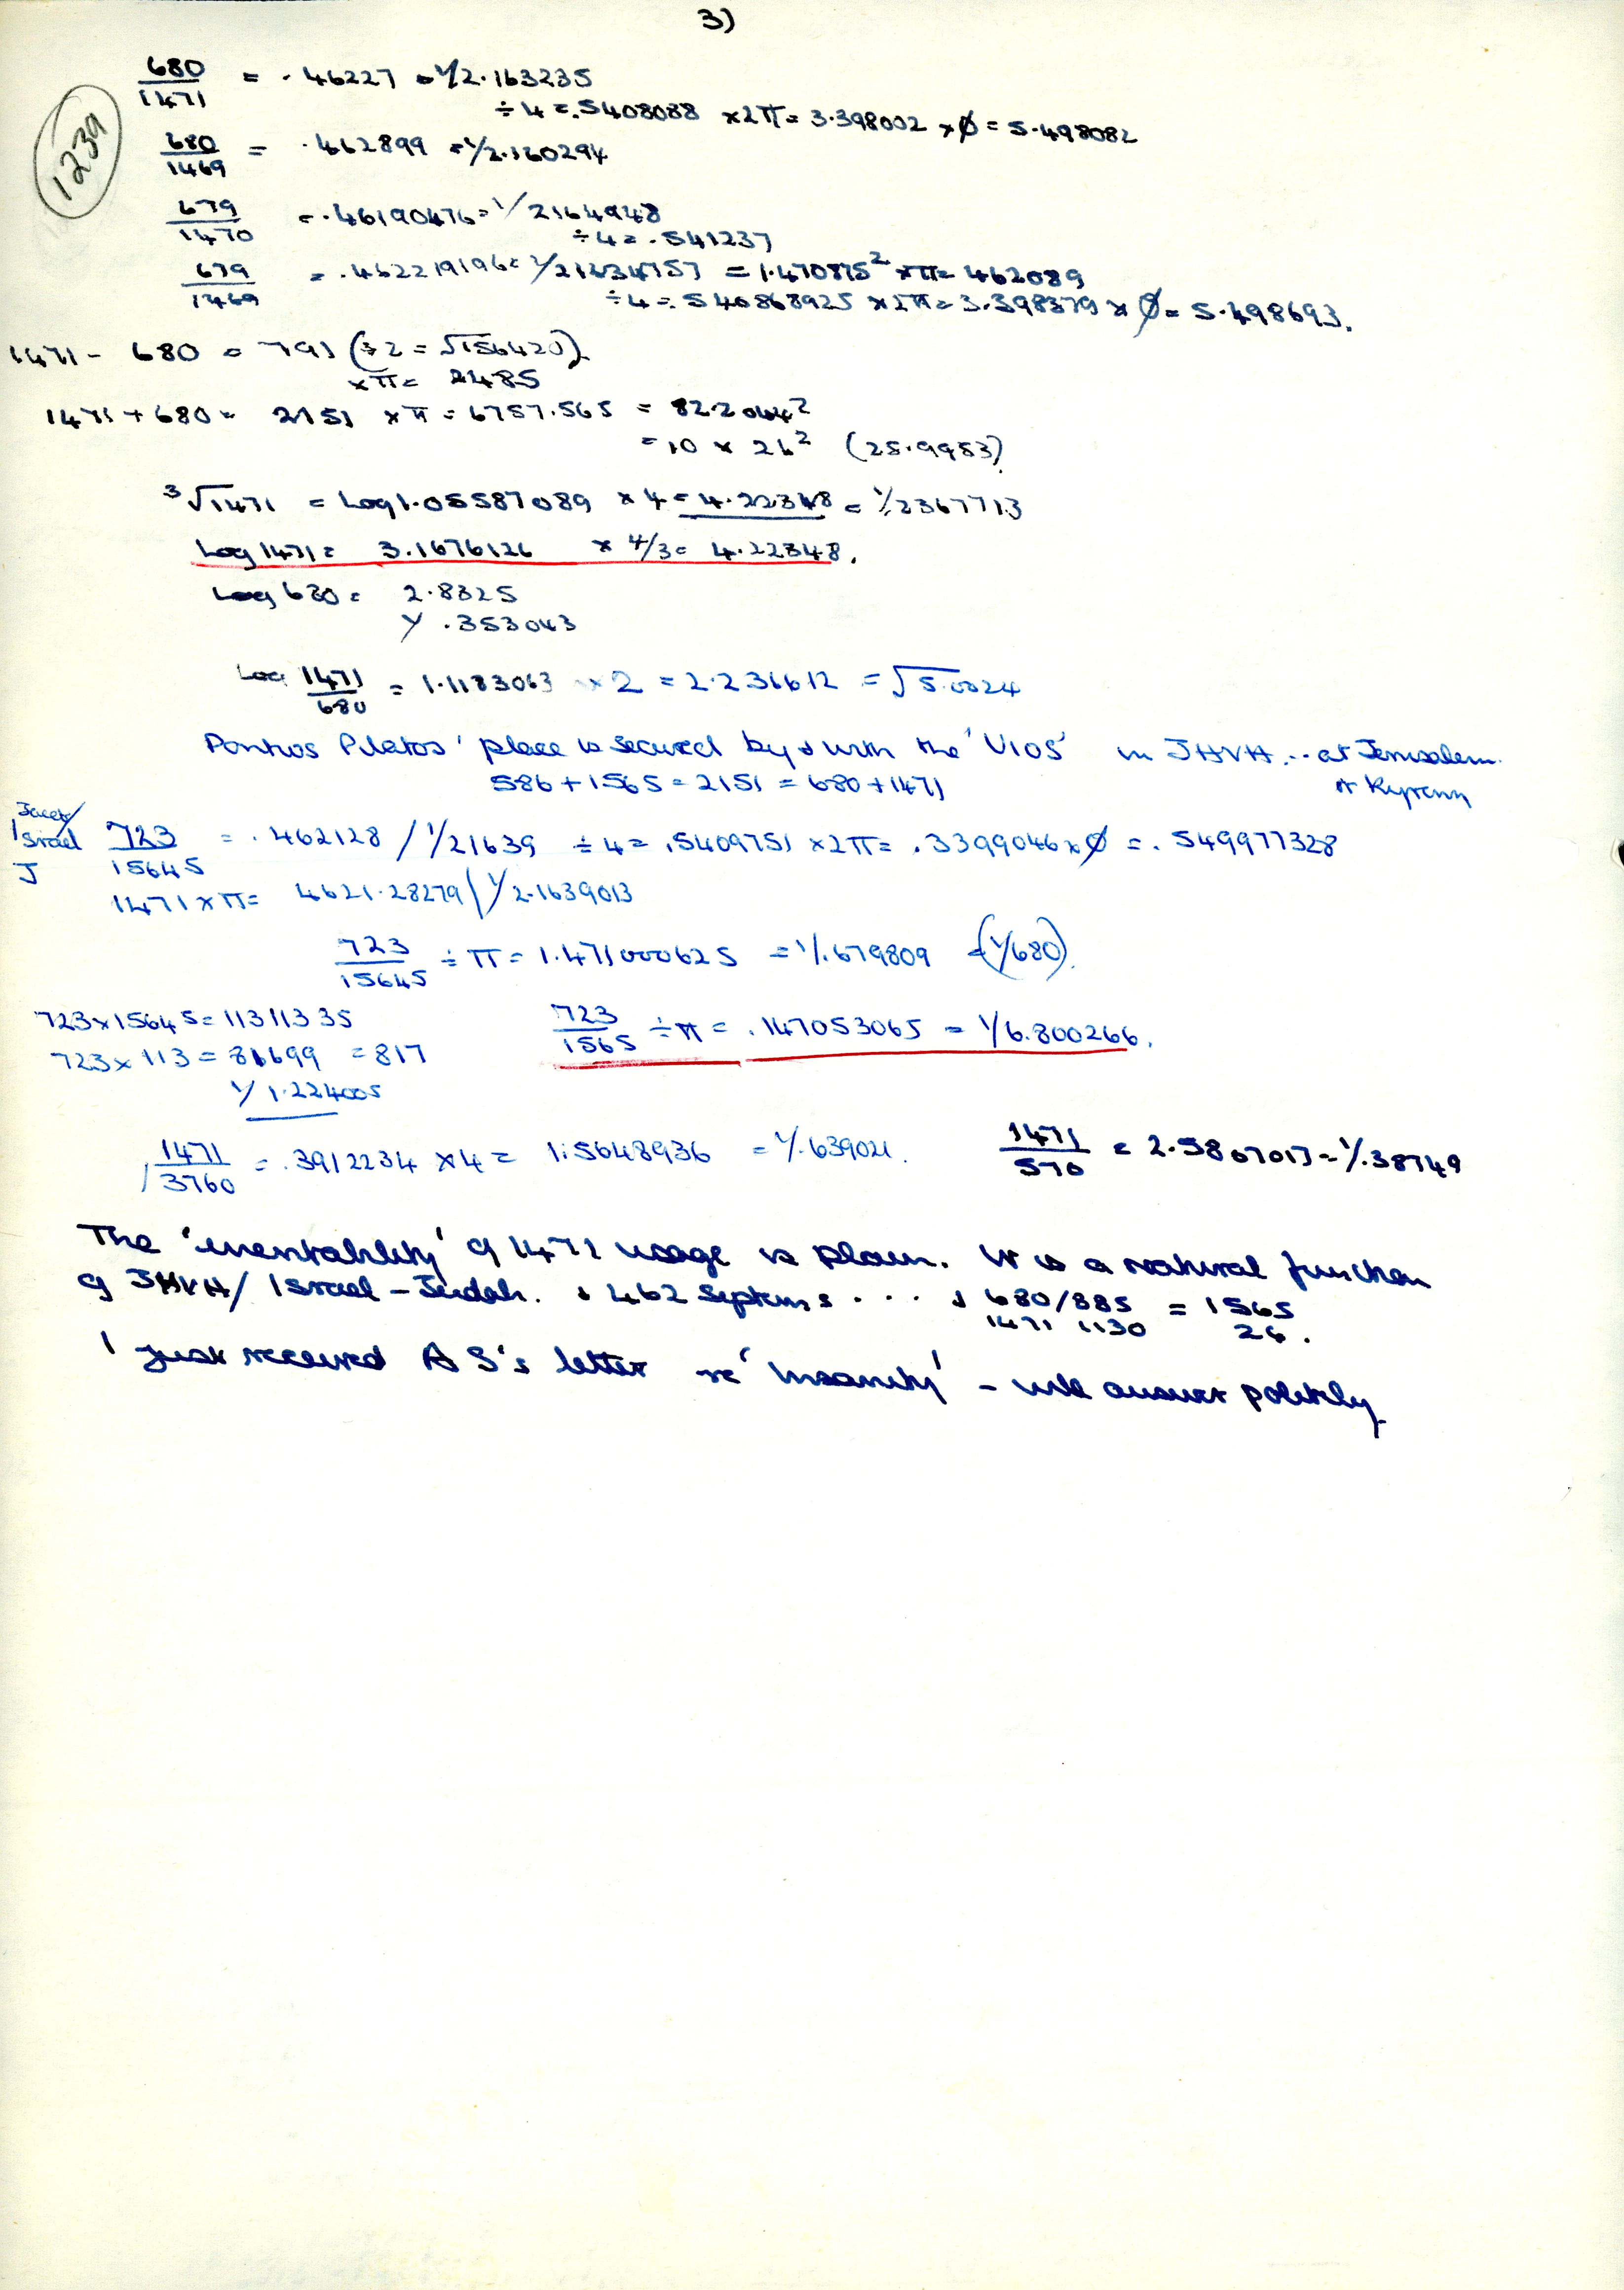 3)
1239
680/1471 = .46227 = 1/2.163235
÷ 4 = .5408088 × 2π = 3.398002 × Ø = 5.498082
680/1469 = .462899 = 1/2.160294
679/1470 = .46190476 = 1/2164948
÷ 4 = .541237
679/1469 = .462219196 = 1/21634757 = 1.470875² × π = 462089
÷ 4 = 540868925 × 2π = 3.398379 × Ø = 5.498693.
1471 - 680 = 791 (÷ 2 = √156420)
× π = 2485
1471 + 680 = 2151 × π = 6757.565 = 82.2044²
= 10 × 26² (25.9953)
³√1471 = Log 1.05587089 × 4 = 4.22348 = 1/.2367713
Log 1471 = 3.1676126 × 4/3 = 4.22348.
Log 680 = 2.8325
1/ .353043
Log 1471/680 = 1.1183063 × 2 = 2.236612 = √5.0024
Pontios Pilatos' place is secured by & with the 'UIOS' in JHVH... at Jerusalem.
586 + 1565 = 2151 = 680 + 1471
or Kyrenn
Jacob/
Israel 723/15645 = .462128 / 1/21639 ÷ 4 = .5409751 × 2π = .3399046 × Ø = .549977328
J
1471 × π = 4621.28279 / 1/2.1639013
723/15645 ÷ π = 1.471000625 = 1/.679809 = (1/680).
723 × 15645 = 11311335
723/1565 ÷ π = .147053065 = 1/6.800266.
723 × 113 = 81699 = 817
1/ 1.224005
1471/3760 = .3912234 × 4 = 1.5648936 = 1/.639021.
1471/570 = 2.5807017 = 1/.38749
The 'inevitability' of 1471 usage is plain. It is a natural function
of JHVH / Israel - Judah. & 462 Systems ... & 680/885 = 1565
1471 1130 26.
I just received A S's letter re 'Insanity' - will answer politely